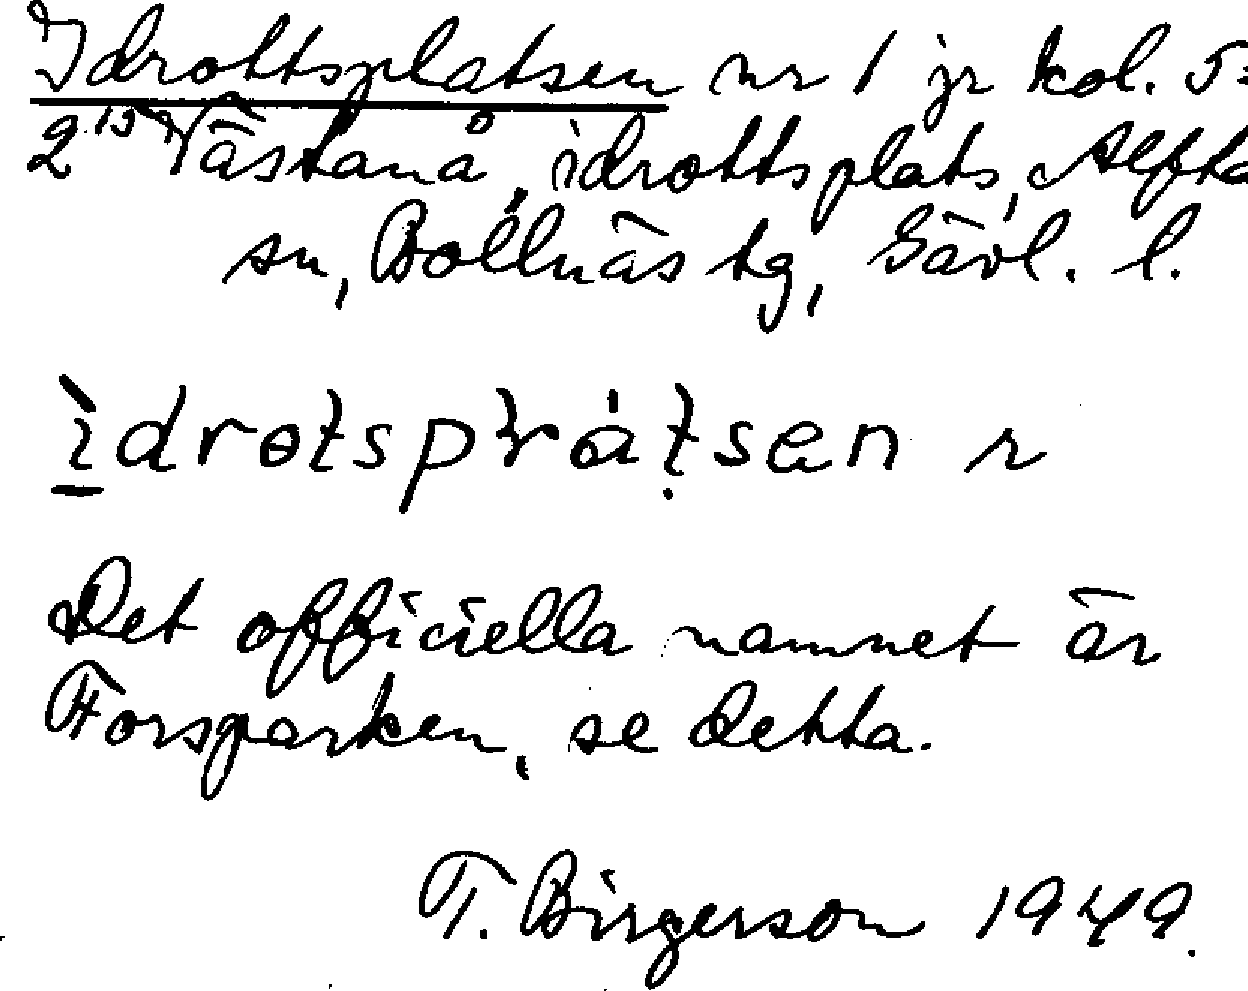 Idrottsplatsen nr 1 jr kol. 5:
2¹⁵ Västanå, idrottsplats, Alfta
sn, Bollnäs tg, Gävl. l.
ìdrotsplatsen r
Det officiella namnet är
Forsparken, se detta.
T. Birgerson 1949.